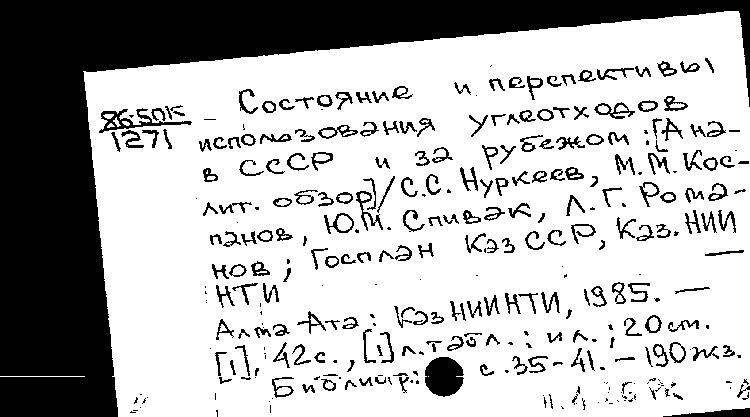 86-50К
1271
Состояние и перспективы
использования углеотходов
в СССР и за рубежом : [Ана-
лит. обзор] / С.С. Нуркеев, М.М. Кос-
панов, Ю.М. Спивак, Л.Г. Рома-
нов ; Госплан КазССР, Каз. НИИ
НТИ —
Алма-Ата : КазНИИНТИ, 1985. —
[1], 42с., [1] л. табл. : ил. ; 20см.
Библиогр.: с. 35-41. — 190 экз.